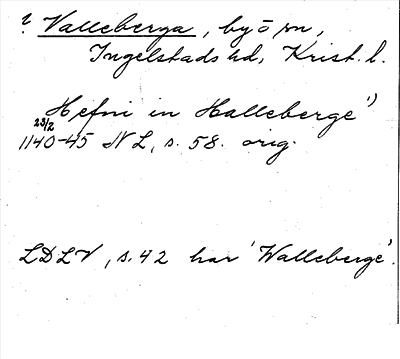 ? Valleberga, by o sn,
Ingelstads hd, Krist. l.
Hefni in Halleberge 1)
23/2
1140-45 NL, s. 58. orig.
LDLV, s. 42 har 'Walleberge'.